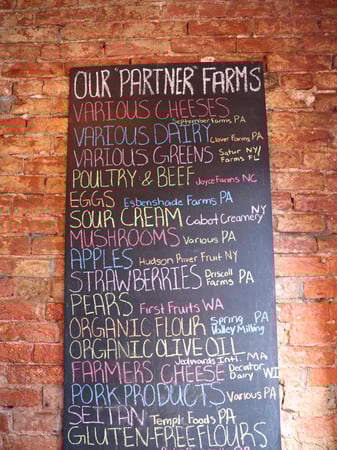 OUR "PARTNER" FARMS
VARIOUS CHEESES
September Farms, PA
VARIOUS DAIRY Clover Farms, PA
VARIOUS GREENS Satur NY/
Farms FL
POULTRY & BEEF Joyce Farms NC
EGGS Esbenshade Farms PA
SOUR CREAM Cabot Creamery NY
MUSHROOMS Various PA
APPLES Hudson River Fruit NY
STRAWBERRIES Driscoll
Farms PA
PEARS First Fruits WA
ORGANIC FLOUR Spring PA
Valley Milling
ORGANIC OLIVE OIL
Jedwards Intl. MA
FARMERS CHEESE Decatur
Dairy WI
PORK PRODUCTS Various PA
SEITAN Temple Foods PA
GLUTEN-FREE FLOURS